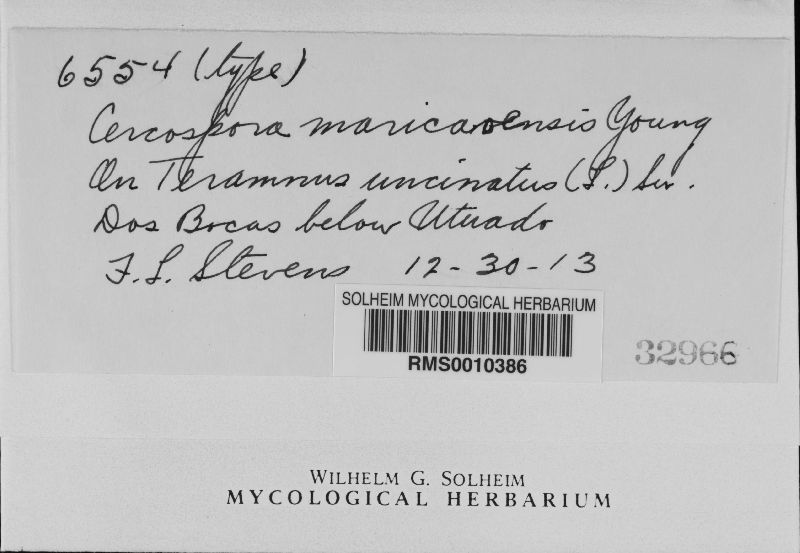 6554 (type)
Cercospora maricaoensis Young
On Teramnus uncinatus (L.) Sw.
Dos Bocas below Utuado
F. L. Stevens 12-30-13
SOLHEIM MYCOLOGICAL HERBARIUM
RMS0010386
32966
WILHELM G. SOLHEIM
MYCOLOGICAL HERBARIUM